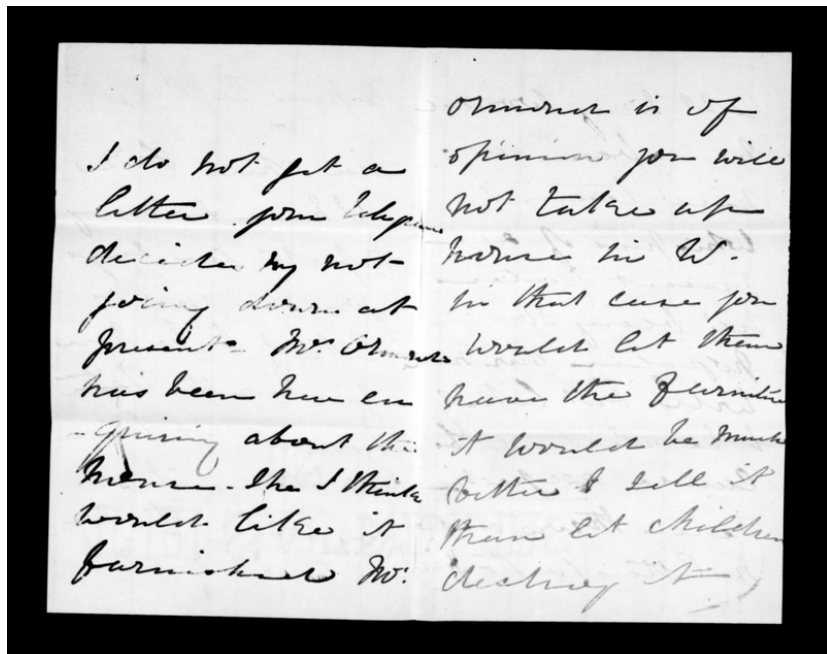 I do not get a
letter your Telegram
decides my not
going down at
present - Mrs Ormond
has been here en
-quiring about the
house - she I think
would like it
furnished Mr.
Ormond is of
opinion you will
not take up
house in W.
in that case you
would let them
have the furniture
it would be much
better I sell it
than let children
destroy it